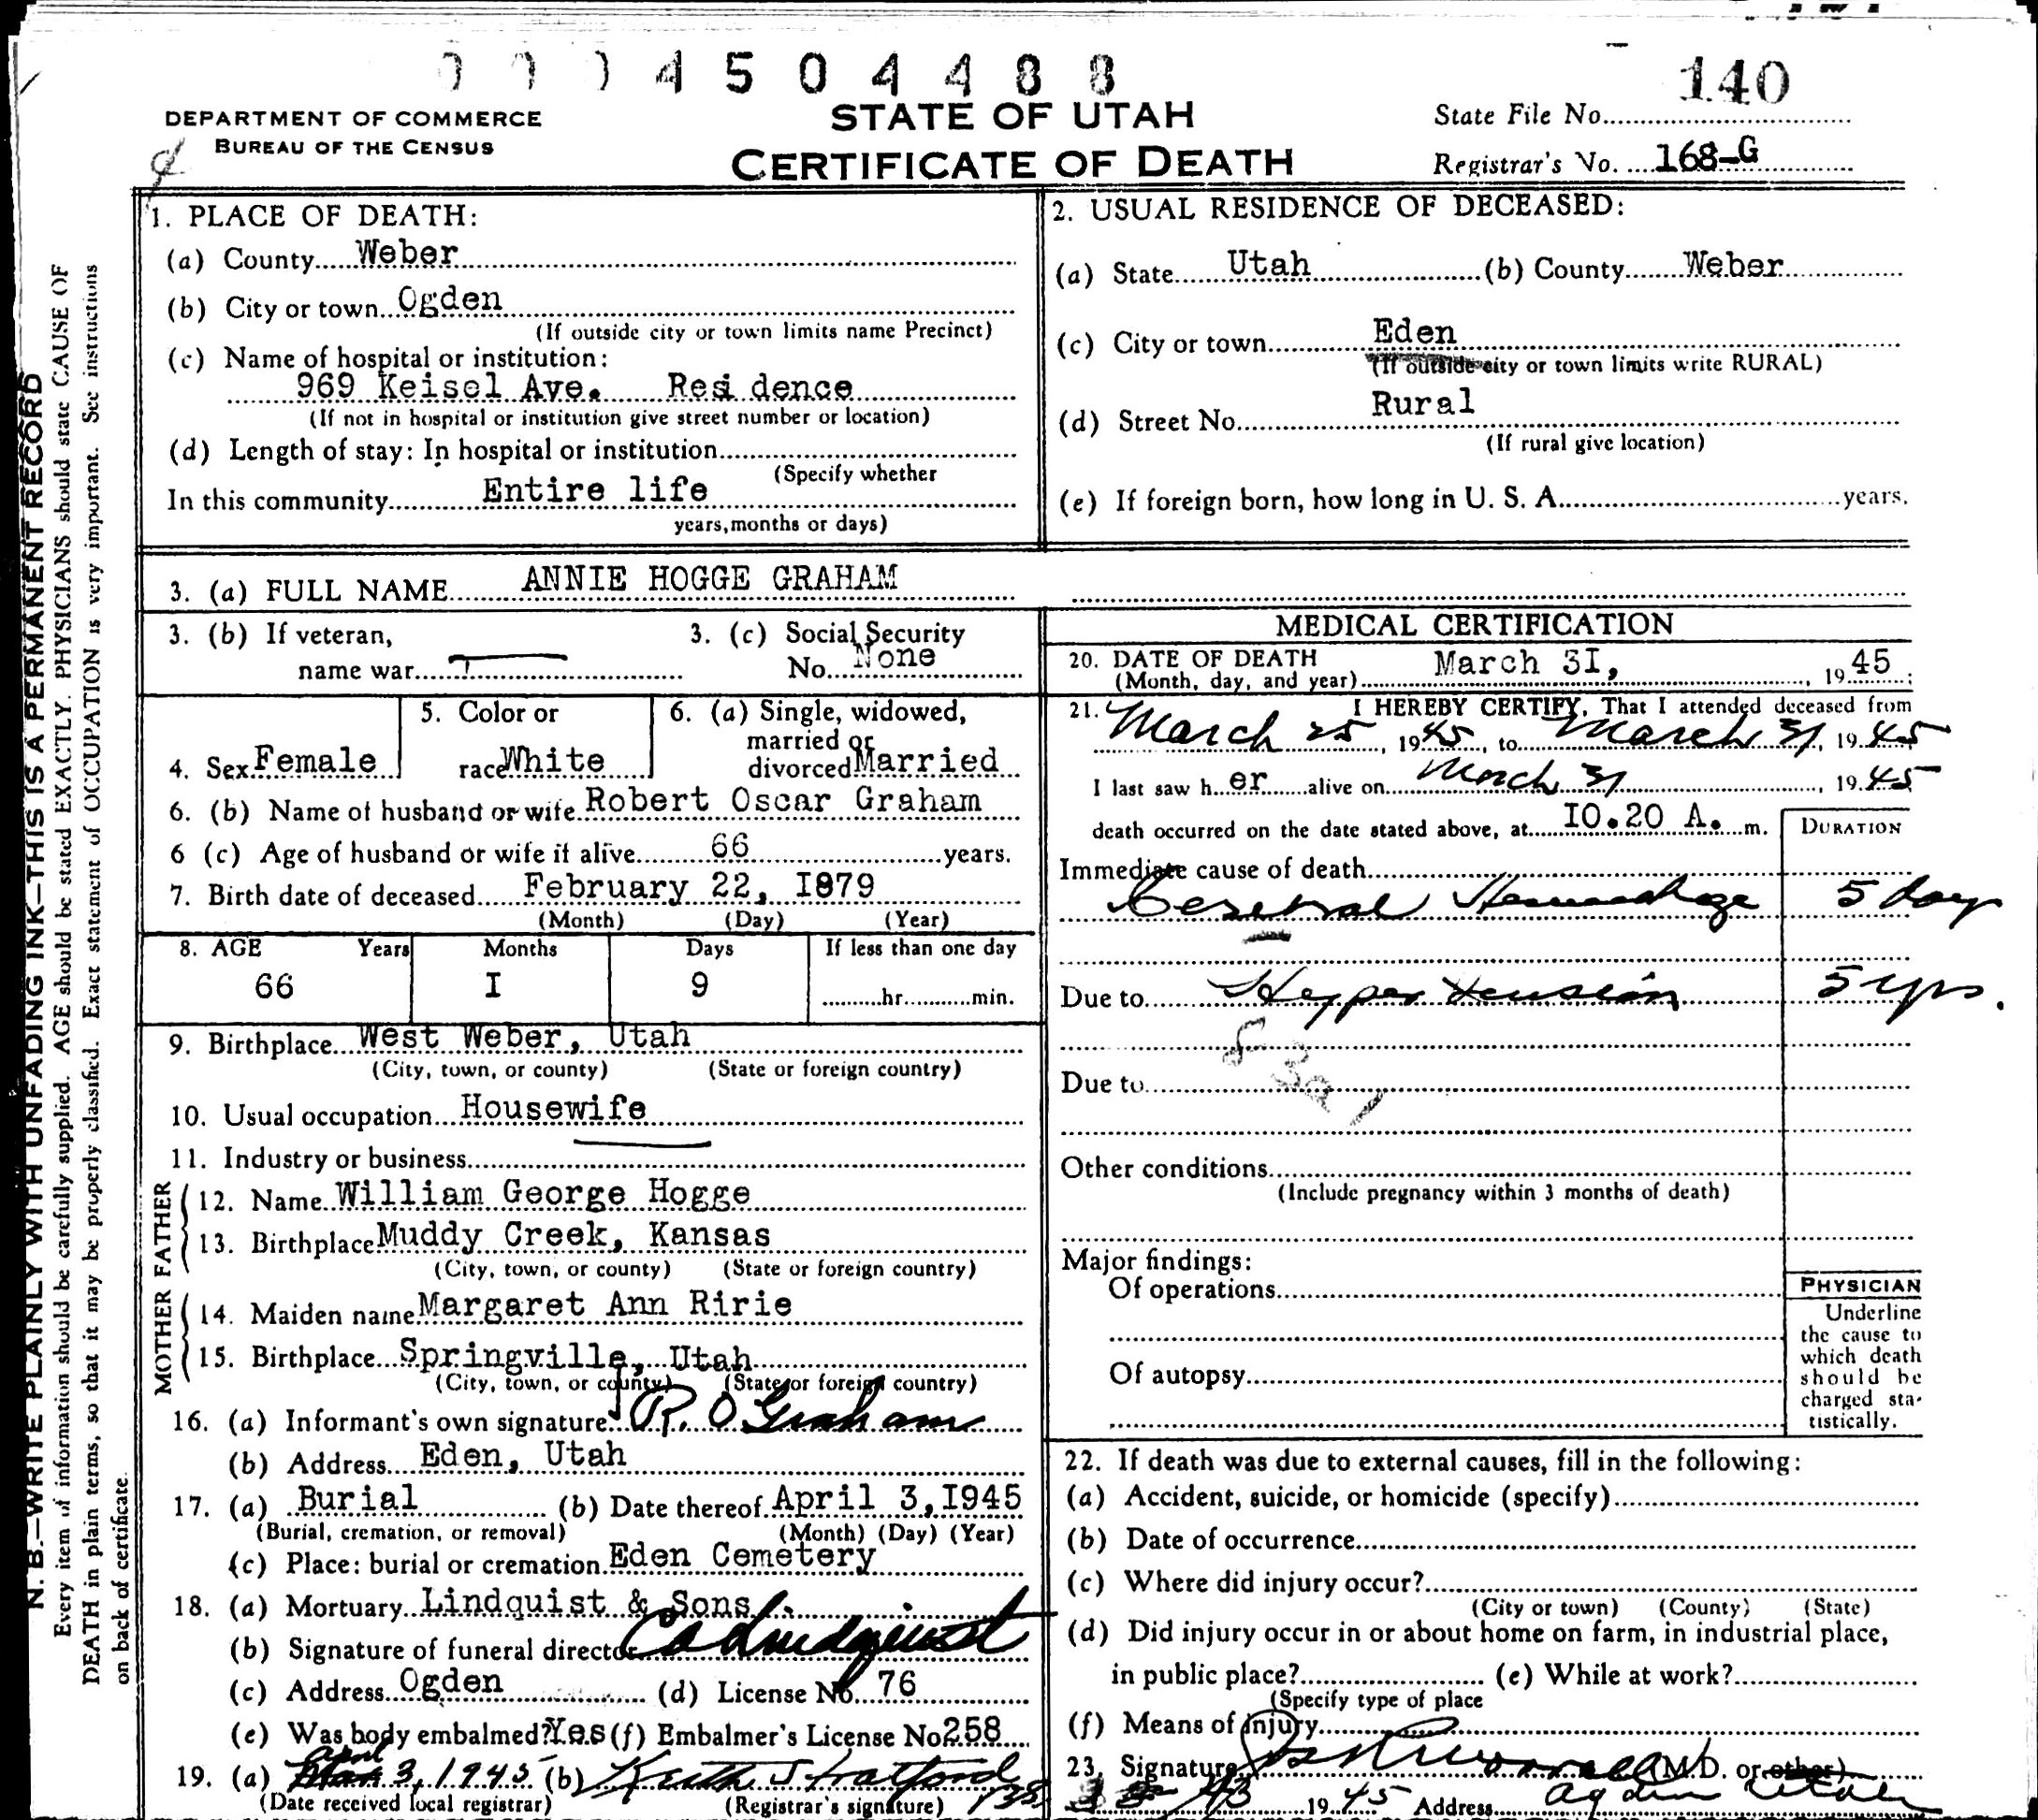 4 5 0 4 4 8 8
140
DEPARTMENT OF COMMERCE
BUREAU OF THE CENSUS
STATE OF UTAH
CERTIFICATE OF DEATH
State File No.
Registrar's No. 168-G
N. B.—WRITE PLAINLY WITH UNFADING INK—THIS IS A PERMANENT RECORD
Every item of information should be carefully supplied. AGE should be stated EXACTLY. PHYSICIANS should state CAUSE OF
DEATH in plain terms, so that it may be properly classified. Exact statement of OCCUPATION is very important. See instructions
on back of certificate.
1. PLACE OF DEATH:
(a) County Weber
(b) City or town Ogden
(If outside city or town limits name Precinct)
(c) Name of hospital or institution:
969 Keisel Ave. Resi dence
(If not in hospital or institution give street number or location)
(d) Length of stay: In hospital or institution
(Specify whether
In this community Entire life
years, months or days)
2. USUAL RESIDENCE OF DECEASED:
(a) State Utah (b) County Weber
(c) City or town Eden
(If outside city or town limits write RURAL)
(d) Street No. Rural
(If rural give location)
(e) If foreign born, how long in U. S. A. years.
3. (a) FULL NAME ANNIE HOGGE GRAHAM
3. (b) If veteran, 3. (c) Social Security
name war No. None
4. Sex Female
5. Color or
race White
6. (a) Single, widowed,
married or
divorced Married
6. (b) Name of husband or wife Robert Oscar Graham
6 (c) Age of husband or wife if alive 66 years.
7. Birth date of deceased February 22, I879
(Month) (Day) (Year)
8. AGE Years Months Days If less than one day
66 I 9 hr. min.
9. Birthplace West Weber, Utah
(City, town, or county) (State or foreign country)
10. Usual occupation Housewife
11. Industry or business
FATHER
12. Name William George Hogge
13. Birthplace Muddy Creek, Kansas
(City, town, or county) (State or foreign country)
MOTHER
14. Maiden name Margaret Ann Ririe
15. Birthplace Springville, Utah
(City, town, or county) (State or foreign country)
16. (a) Informant's own signature R. O Graham
(b) Address Eden, Utah
17. (a) Burial (b) Date thereof April 3, I945
(Burial, cremation, or removal) (Month) (Day) (Year)
(c) Place: burial or cremation Eden Cemetery
18. (a) Mortuary Lindquist & Sons
(b) Signature of funeral director C A Lindquist
(c) Address Ogden (d) License No. 76
(e) Was body embalmed? Yes (f) Embalmer's License No 258
April
19. (a) Mar 3, 1945 (b) Keith Stratford
(Date received local registrar) (Registrar's signature)
MEDICAL CERTIFICATION
20. DATE OF DEATH March 3I, 1945;
(Month, day, and year)
21. I HEREBY CERTIFY, That I attended deceased from
March 25, 1945, to March 31, 1945
I last saw h er alive on March 31, 1945
death occurred on the date stated above, at I0.20 A. m.
DURATION
Immediate cause of death
Cerebral Hemorrhage 5 days
Due to Hypertension 5 yrs.
Due to
Other conditions
(Include pregnancy within 3 months of death)
Major findings:
Of operations
Of autopsy
PHYSICIAN
Underline
the cause to
which death
should be
charged sta-
tistically.
22. If death was due to external causes, fill in the following:
(a) Accident, suicide, or homicide (specify)
(b) Date of occurrence
(c) Where did injury occur?
(City or town) (County) (State)
(d) Did injury occur in or about home on farm, in industrial place,
in public place? (e) While at work?
(Specify type of place
(f) Means of injury
23. Signature (M.D. or other)
1945 Address Ogden Utah